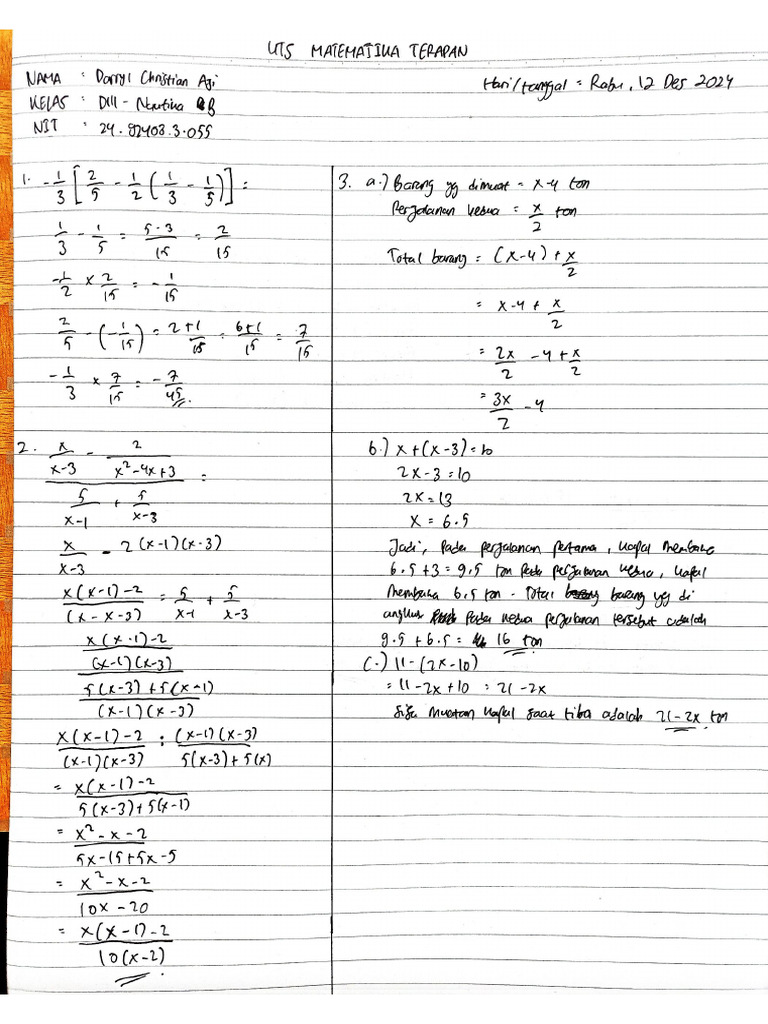 UTS MATEMATIKA TERAPAN
NAMA : Darryl Christian Aji
Hari/tanggal = Rabu, 12 Des 2024
KELAS : DIII - Nautika B
NIT : 24.82403.3.055
1. -1/3 [2/5 - 1/2 (1/3 - 1/5)] =
1/3 - 1/5 = 5-3/15 = 2/15
-1/2 × 2/15 = -1/15
2/5 - (-1/15) = 2+1/15 = 6+1/15 = 7/15
-1/3 × 7/15 = -7/45
2. x/x-3 - 2/x²-4x+3 =
5/x-1 + 5/x-3
x/x-3 - 2(x-1)(x-3)
x(x-1)-2/(x-x-3) = 5/x-1 + 5/x-3
x(x-1)-2
(x-1)(x-3)
5(x-3)+5(x-1)
(x-1)(x-3)
x(x-1)-2/(x-1)(x-3) : (x-1)(x-3)/5(x-3)+5(x)
= x(x-1)-2/5(x-3)+5(x-1)
= x²-x-2/5x-15+5x-5
= x²-x-2/10x-20
= x(x-1)-2/10(x-2)
3. a.) Barang yg dimuat = x-4 ton
Perjalanan kedua = x/2 ton
Total barang = (x-4)+x/2
= x-4+x/2
= 2x/2 -4+x/2
= 3x/2 -4
b.) x+(x-3)=10
2x-3=10
2x=13
x = 6.5
Jadi, Pada perjalanan pertama, kapal membawa
6.5+3 = 9.5 ton Pada perjalanan kedua, kapal
membawa 6.5 ton. Total barang yg di
angkut Pada kedua perjalanan tersebut adalah
9.5+6.5= 16 ton
(c.) 11-(2x-10)
= 11-2x+10 = 21-2x
Sisa muatan kapal saat tiba adalah 21-2x ton